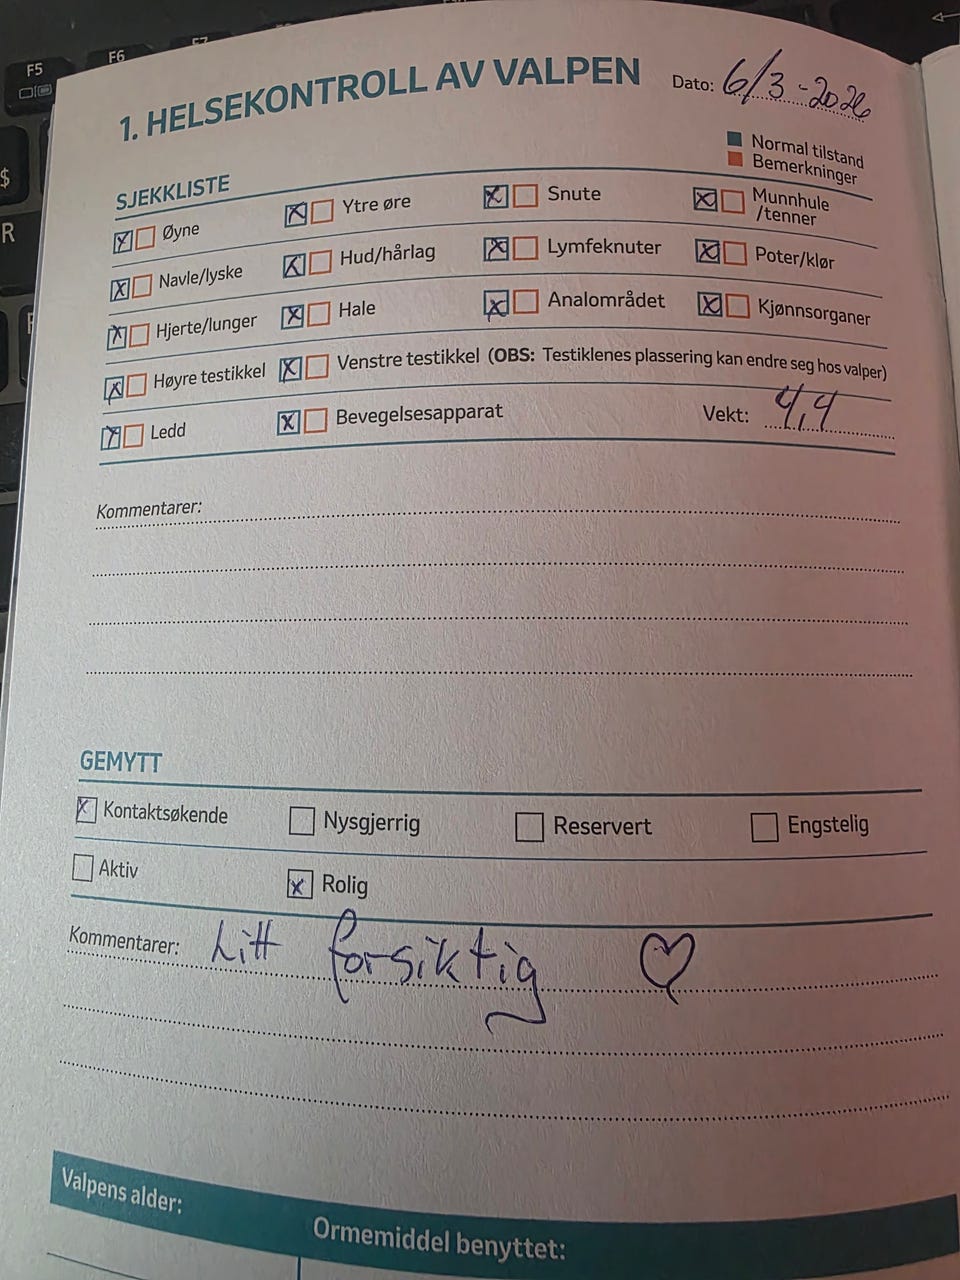 F5 F6 F7
$
R
1. HELSEKONTROLL AV VALPEN Dato: 6/3-2026
Normal tilstand
Bemerkninger
SJEKKLISTE
Øyne Ytre øre Snute Munnhule /tenner
Navle/lyske Hud/hårlag Lymfeknuter Poter/klør
Hjerte/lunger Hale Analområdet Kjønnsorganer
Høyre testikkel Venstre testikkel (OBS: Testiklenes plassering kan endre seg hos valper)
Ledd Bevegelsesapparat Vekt: 4,4
Kommentarer:
GEMYTT
Kontaktsøkende Nysgjerrig Reservert Engstelig
Aktiv Rolig
Kommentarer: Litt forsiktig ♡
Valpens alder: Ormemiddel benyttet: